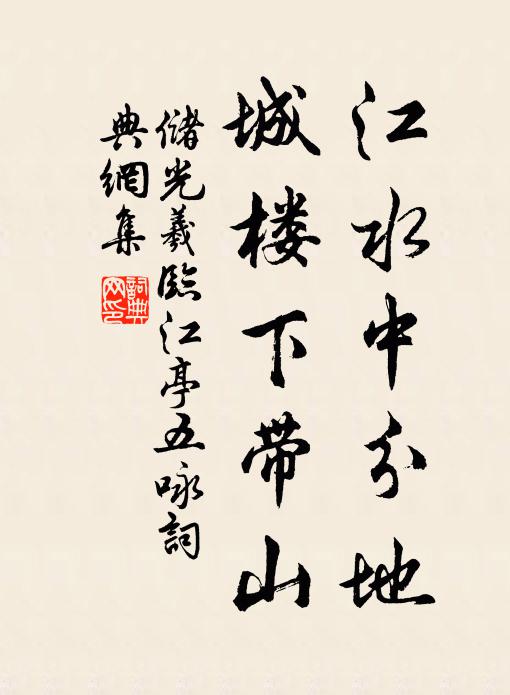 江水中分地
城楼下带山
儲光羲臨江亭五咏詞
典網集
詞典网印